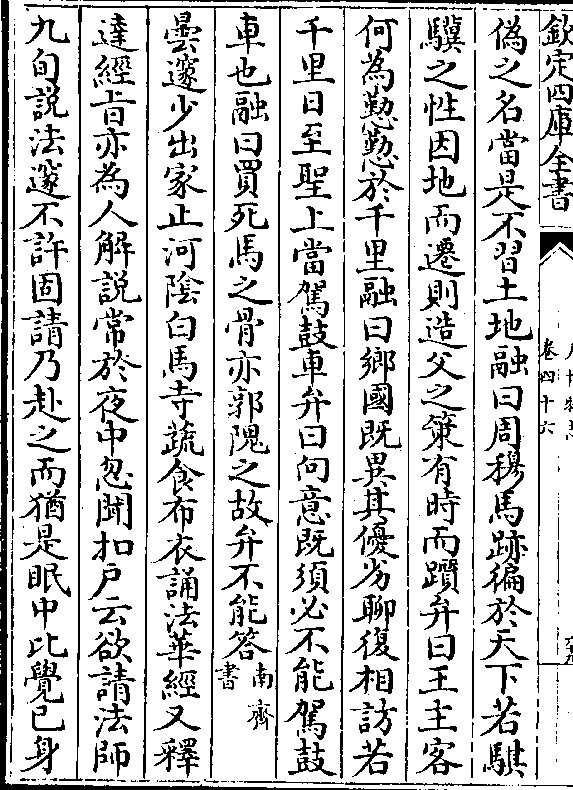 欽定四庫全書
卷四十六
偽之名當是不習土地融曰周穆馬跡徧於天下若騏
驥之性因地而遷則造父之策有時而躓弁曰王主客
何為勤懃於千里融曰鄉國既異其優劣聊復相訪若
千里日至聖上當駕鼓車弁曰向意既須必不能駕鼓
車也融曰買死馬之骨亦郭隗之故弁不能答南齊書
曇邃少出家止河陰白馬寺蔬食布衣誦法華經又釋
達經旨亦為人解說常於夜中忽聞扣戶云欲請法師
九旬說法邃不許固請乃赴之而猶是眠中比覺己身